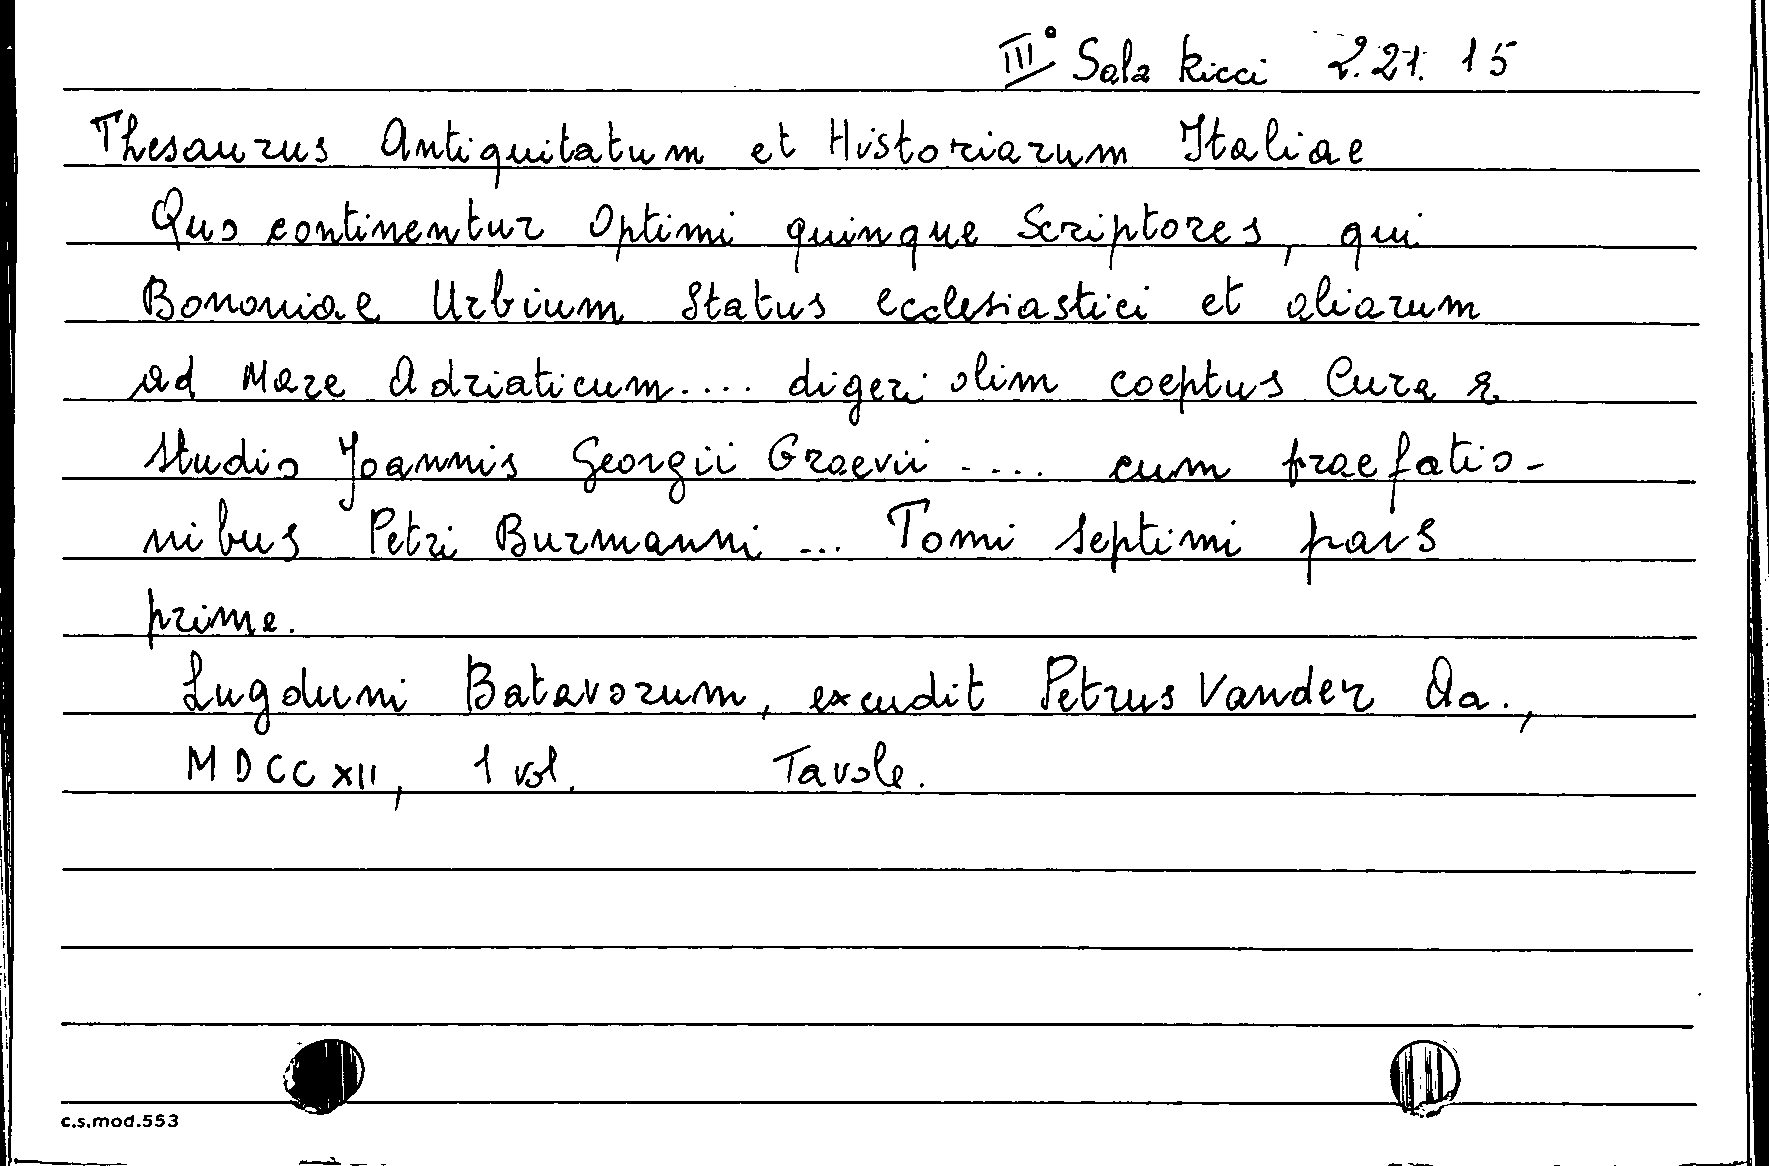 III° Sala Ricci 2.21.15
Thesaurus Antiquitatum et Historiarum Italiae
Quo continentur Optimi quinque Scriptores, qui
Bononiae Urbium Status Ecclesiastici et aliarum
ad Mare Adriaticum.... digeri olim coeptus Cura &
studio Joannis Georgii Graevii .... cum praefatio-
nibus Petri Burmanni ... Tomi septimi pars
prime.
Lugduni Batavorum, excudit Petrus Vander Aa.,
MDCCXII, 1 vol. Tavole.
c.s.mod.553